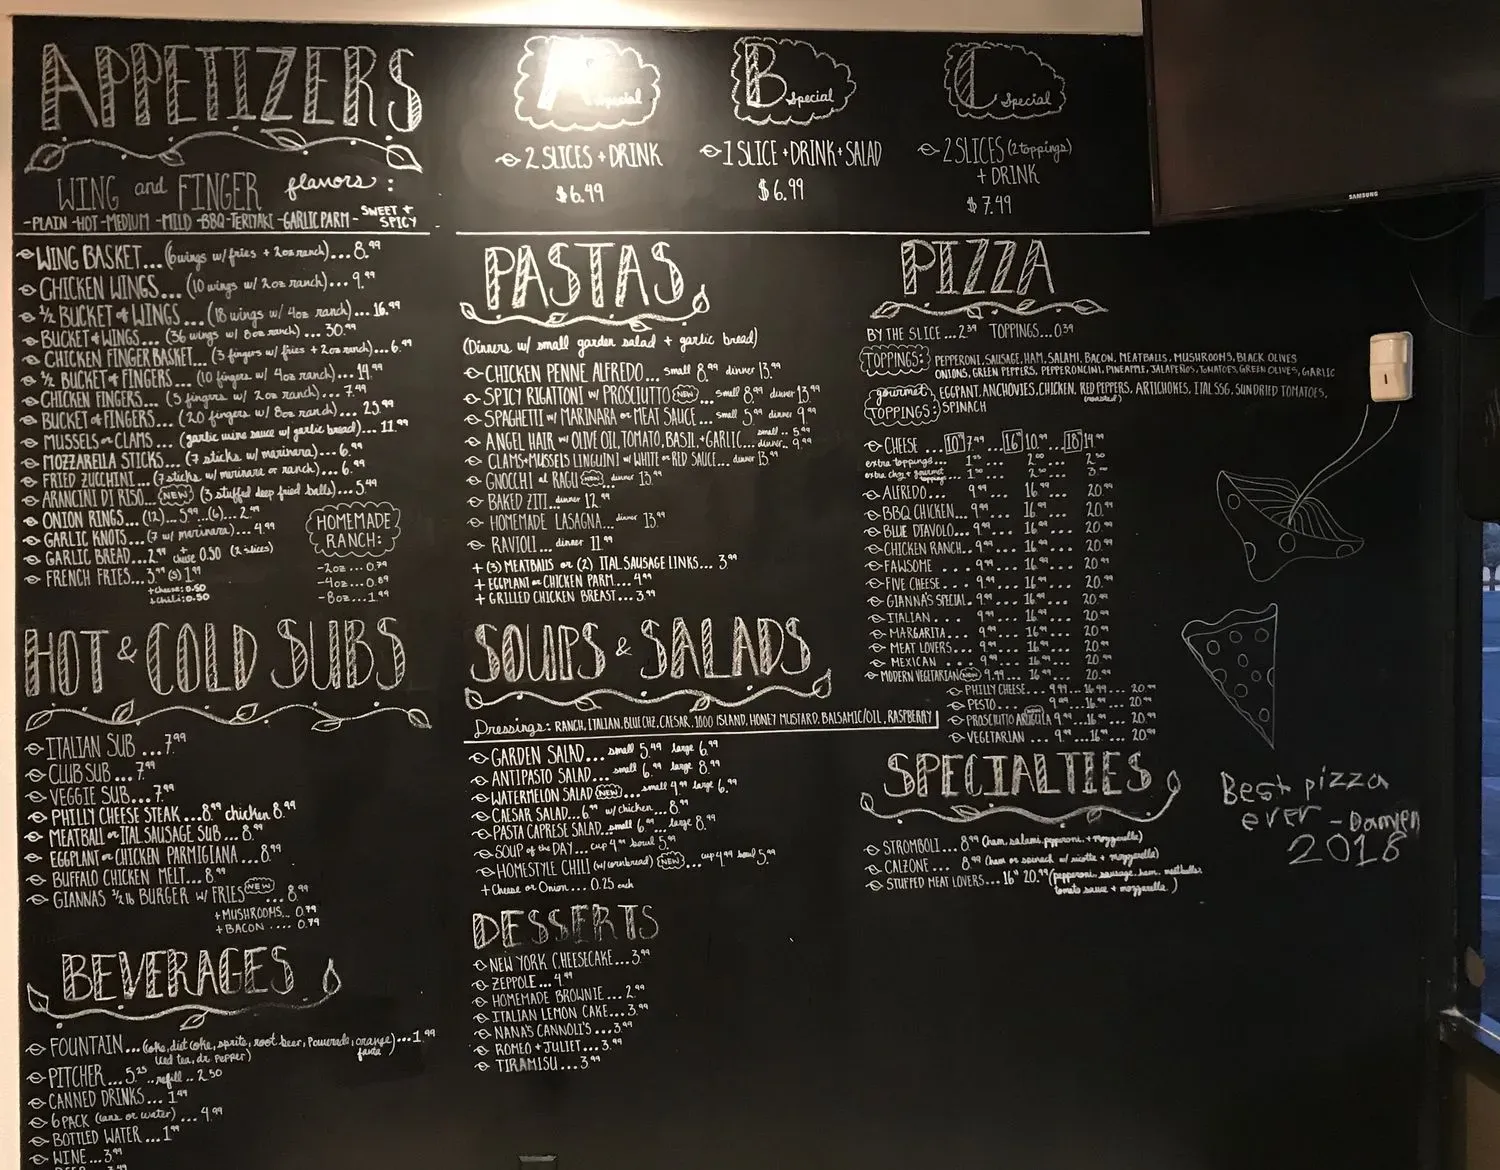 APPETIZERS
WING and FINGER flavors:
-PLAIN -HOT -MEDIUM -MILD -BBQ -TERIYAKI -GARLIC PARM - SWEET + SPICY
WING BASKET... (6 wings w/ fries + 2oz ranch)... 8.99
CHICKEN WINGS... (10 wings w/ 2oz ranch)... 9.99
1/2 BUCKET of WINGS... (18 wings w/ 4oz ranch)... 16.99
BUCKET of WINGS... (36 wings w/ 8oz ranch)... 30.99
CHICKEN FINGER BASKET... (3 fingers w/ fries + 2oz ranch)... 6.99
1/2 BUCKET of FINGERS... (10 fingers w/ 4oz ranch)... 14.99
CHICKEN FINGERS... (5 fingers w/ 2oz ranch)... 7.99
BUCKET of FINGERS... (20 fingers w/ 8oz ranch)... 25.99
MUSSELS or CLAMS... (garlic wine sauce w/ garlic bread)... 11.99
MOZZARELLA STICKS... (7 sticks w/ marinara)... 6.99
FRIED ZUCCHINI... (7 sticks w/ marinara or ranch)... 6.99
ARANCINI DI RISO... NEW (3 stuffed deep fried balls)... 5.49
ONION RINGS... (12)... 5.99 ...(6)... 2.99
GARLIC KNOTS... (7 w/ marinara)... 4.99
GARLIC BREAD... 2.99 + cheese 0.50 (2 slices)
FRENCH FRIES... 3.99 (s) 1.99
+cheese: 0.50
+chili: 0.50
HOMEMADE RANCH:
-2oz... 0.79
-4oz... 0.89
-8oz... 1.99
HOT & COLD SUBS
ITALIAN SUB ... 7.99
CLUB SUB ... 7.99
VEGGIE SUB... 7.99
PHILLY CHEESE STEAK ... 8.99 chicken 8.99
MEATBALL or ITAL SAUSAGE SUB ... 8.99
EGGPLANT or CHICKEN PARMIGIANA ... 8.99
BUFFALO CHICKEN MELT... 8.99
GIANNAS 1/2 lb BURGER w/ FRIES NEW ... 8.99
+MUSHROOMS... 0.79
+BACON .... 0.79
BEVERAGES
FOUNTAIN... (coke, diet coke, sprite, root beer, Powerade, orange fanta
iced tea, dr. pepper)... 1.99
PITCHER... 5.25 ..refill .. 2.50
CANNED DRINKS ... 1.49
6 PACK (cans or water) ... 4.99
BOTTLED WATER ... 1.99
WINE ... 3.99
A Special
2 SLICES + DRINK
$6.99
B Special
1 SLICE + DRINK + SALAD
$6.99
C Special
2 SLICES (2 toppings)
+ DRINK
$7.49
PASTAS
(Dinners w/ small garden salad + garlic bread)
CHICKEN PENNE ALFREDO... small 8.99 dinner 13.99
SPICY RIGATTONI w/ PROSCIUTTO NEW ... small 8.99 dinner 13.99
SPAGHETTI w/ MARINARA or MEAT SAUCE... small 5.99 dinner 9.99
ANGEL HAIR w/ OLIVE OIL, TOMATO, BASIL + GARLIC... small .. 5.99 dinner.. 9.99
CLAMS+MUSSELS LINGUINI w/ WHITE or RED SAUCE... dinner 13.99
GNOCCHI al RAGU NEW ... dinner 13.99
BAKED ZITI... dinner 12.99
HOMEMADE LASAGNA... dinner 13.99
RAVIOLI... dinner 11.99
+ (3) MEATBALLS or (2) ITAL SAUSAGE LINKS... 3.99
+ EGGPLANT or CHICKEN PARM... 4.99
+ GRILLED CHICKEN BREAST... 3.99
SOUPS & SALADS
Dressings: RANCH, ITALIAN, BLUE CHZ, CAESAR, 1000 ISLAND, HONEY MUSTARD, BALSAMIC/OIL, RASPBERRY
GARDEN SALAD... small 5.49 large 6.99
ANTIPASTO SALAD... small 6.99 large 8.99
WATERMELON SALAD NEW ... small 4.99 large 6.99
CAESAR SALAD... 6.99 w/ chicken... 8.99
PASTA CAPRESE SALAD... small 6.99 .. large 8.99
SOUP of the DAY... cup 4.99 bowl 5.99
HOMESTYLE CHILI (w/ cornbread) NEW ... cup 4.99 bowl 5.99
+ Cheese or Onion... 0.25 each
DESSERTS
NEW YORK CHEESECAKE... 3.99
ZEPPOLE... 4.99
HOMEMADE BROWNIE... 2.99
ITALIAN LEMON CAKE... 3.99
NANA'S CANNOLI'S... 3.99
ROMEO + JULIET... 3.99
TIRAMISU... 3.99
PIZZA
BY THE SLICE... 2.39 TOPPINGS... 0.39
TOPPINGS: PEPPERONI, SAUSAGE, HAM, SALAMI, BACON, MEATBALLS, MUSHROOMS, BLACK OLIVES
ONIONS, GREEN PEPPERS, PEPPERONCINI, PINEAPPLE, JALAPEÑOS, TOMATOES, GREEN OLIVES, GARLIC
gourmet TOPPINGS: EGGPANT, ANCHOVIES, CHICKEN, RED PEPPERS, ARTICHOKES, ITAL SSG, SUNDRIED TOMATOES,
(roasted)
SPINACH
CHEESE 10" 7.99 ... 16" 10.99 ... 18" 14.99
extra toppings...
extra chz + gourmet toppings...
ALFREDO... 9.99 ... 16.99 ... 20.99
BBQ CHICKEN... 9.99 ... 16.99 ... 20.99
BLUE DIAVOLO... 9.99 ... 16.99 ... 20.99
CHICKEN RANCH.. 9.99 ... 16.99 ... 20.99
FAWSOME ... 9.99 ... 16.99 ... 20.99
FIVE CHEESE... 9.99 ... 16.99 ... 20.99
GIANNA'S SPECIAL. 9.99 ... 16.99 ... 20.99
ITALIAN... 9.99 ... 16.99 ... 20.99
MARGARITA... 9.99 ... 16.99 ... 20.99
MEAT LOVERS... 9.99 ... 16.99 ... 20.99
MEXICAN ... 9.99 ... 16.99 ... 20.99
MODERN VEGETARIAN NEW 9.99 ... 16.99 ... 20.99
PHILLY CHEESE... 9.99 ... 16.99 ... 20.99
PESTO... 9.99 ... 16.99 ... 20.99
PROSCIUTTO ARUGULA 9.99 ... 16.99 ... 20.99
VEGETARIAN ... 9.99 ... 16.99 ... 20.99
SPECIALTIES
STROMBOLI... 8.99 (ham, salami, pepperoni, + mozzarella)
CALZONE... 8.99 (ham or spinach w/ ricotta + mozzarella)
STUFFED MEAT LOVERS... 16" 20.99 (pepperoni, sausage, ham, meatballs
tomato sauce + mozzarella)
Best pizza
ever - Damien
2018
SAMSUNG